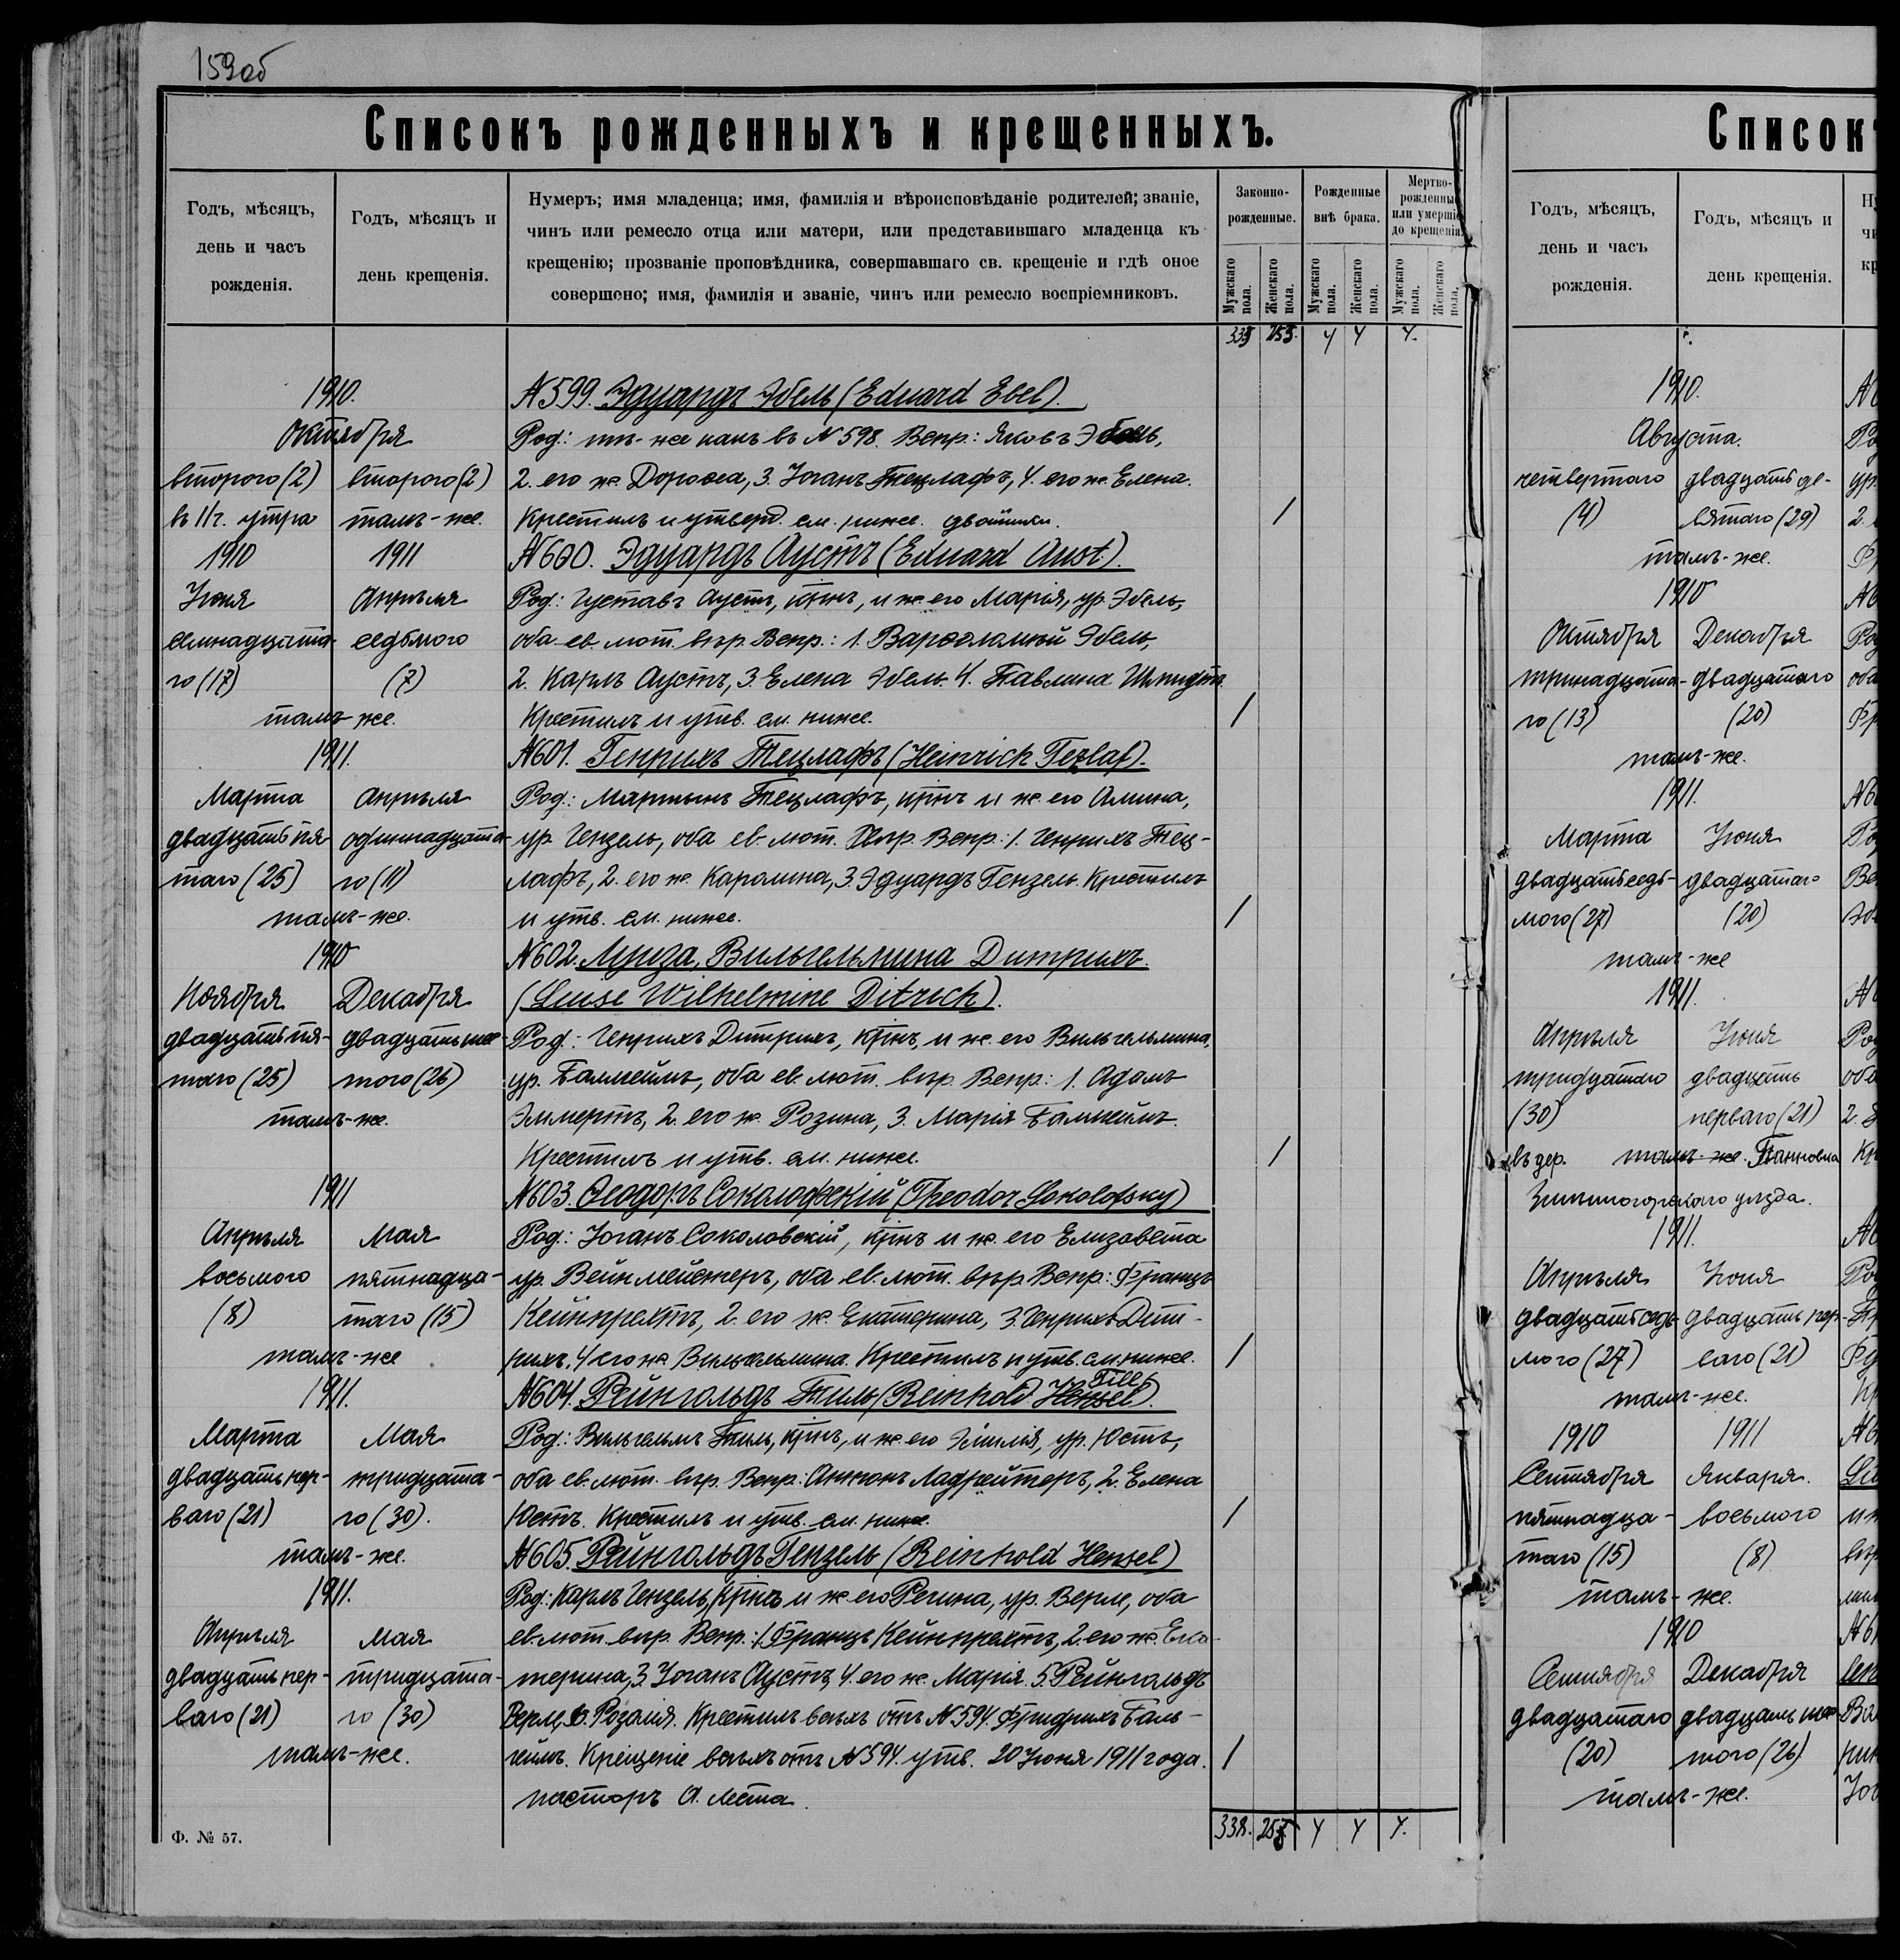 159об
Списокъ рожденныхъ и крещенныхъ.
Годъ, мѣсяцъ, день и часъ рожденія.
Годъ, мѣсяцъ и день крещенія.
Нумеръ; имя младенца; имя, фамилія и вѣроисповѣданіе родителей; званіе,
чинъ или ремесло отца или матери, или представившаго младенца къ
крещенію; прозваніе проповѣдника, совершавшаго св. крещеніе и гдѣ оное
совершено; имя, фамилія и званіе, чинъ или ремесло воспріемниковъ.
Законно-рожденные.
Рожденные внѣ брака.
Мертво-рожденные или умершіе до крещенія.
Мужскаго пола.
Женскаго пола.
Мужскаго пола.
Женскаго пола.
Мужскаго пола.
Женскаго пола.
333 255. 4 4 4.
1910. №599. Эдуардъ Эбель (Eduard Ebel).
Октября Род.: тѣ-же какъ въ №598. Вспр: Яковъ Эбель,
второго (2) второго (2) 2. его ж. Дорофеа, 3. Іоганъ Тецлафъ, 4. его ж. Елена.
въ 11 ч. утра тамъ-же. Крестилъ и утверд. см. ниже. двойники. /
1910 1911 №600. Эдуардъ Аустъ (Eduard Aust).
Іюня Апрѣля Род: Густавъ Аустъ, кр-нъ, и ж. его Марія, ур. Эбель,
семнадцата- седьмого оба ев. лют. вѣр. Вспр.: 1. Варфоломей Эбель,
го (17) (7) 2. Карлъ Аустъ, 3. Елена Эбель. 4. Павлина Шмидтъ.
тамъ-же. Крестилъ и утв. см. ниже. /
1911. №601. Генрихъ Тецлафъ (Heinrich Tezlaf).
Марта Апрѣля Род.: Мартынъ Тецлафъ, кр-нъ и ж. его Алмина,
двадцать пя- одиннадцата- ур. Гензель, оба ев. лют. вѣр. Вспр.: 1. Генрихъ Тец-
таго (25) го (11) лафъ, 2. его ж. Каролина, 3. Эдуардъ Гензель. Крестилъ
тамъ-же. и утв. см. ниже. /
1910 №602. Луиза, Вильгельмина Дитрихъ.
Ноября Декабря (Luise Wilhelmine Ditrich).
двадцать пя- двадцать шес- Род.: Генрихъ Дитрихъ, кр-нъ, и ж. его Вильгельмина,
таго (25) того (26) ур. Балгеймъ, оба ев. лют. вѣр. Вспр: 1. Адамъ
тамъ-же. Эммертъ, 2. его ж. Розина, 3. Марія Балгеймъ.
Крестилъ и утв. см. ниже. /
1911 №603. Ѳеодоръ Соколофскій (Theodor Sokolofsky)
Апрѣля Мая Род: Іоганъ Соколовскій, кр-нъ и ж. его Елизавета
восьмого пятнадца- ур. Вейнмейстеръ, оба ев. лют. вѣр Вспр: Францъ
(8) таго (15) Кейнпрехтъ, 2. его ж. Екатерина, 3. Генрихъ Дит-
тамъ-же рихъ, 4 его ж. Вильгельмина. Крестилъ и утв. см. ниже. /
1911. №604. Рейнгольдъ Тиль (Reinhold Hensel Till).
Марта Мая Род.: Вильгельмъ Тиль, кр-нъ, и ж. его Эмилія, ур. Юстъ,
двадцать пер- тридцата- оба ев. лют. вѣр. Вспр: Антонъ Ладрейтеръ, 2. Елена
ваго (21) го (30). Юстъ. Крестилъ и утв. см. ниже. /
тамъ-же. №605. Рейнгольдъ Гензель (Reinhold Hensel)
1911. Род: Карлъ Гензель, кр-нъ и ж. его Регина, ур. Верле, оба
Апрѣля Мая ев. лют. вѣр. Вспр: 1 Францъ Кейнпрехтъ, 2. его ж. Ека-
двадцать пер- тридцата- терина, 3. Іоганъ Аустъ, 4. его ж. Марія. 5. Рейнгольдъ
ваго (21) го (30) Верле, 6. Розалія. Крестилъ всѣхъ отъ №594. Фридрихъ Баль-
тамъ-же. геймъ. Крещеніе всѣхъ отъ №594 утв. 20 Іюня 1911 года. /
пасторъ А. Леста.
338. 257 4 4 4.
Ф. № 57.
Список
Годъ, мѣсяцъ, день и часъ рожденія.
Годъ, мѣсяцъ и день крещенія.
1910.
Августа.
четвертаго двадцать де-
(4) вятаго (29)
тамъ-же.
1910
Октября Декабря
тринадцата- двадцатаго
го (13) (20)
тамъ-же.
1911.
Марта Іюня
двадцать седь- двадцатаго
мого (27) (20)
тамъ-же
1911.
Апрѣля Іюня
тридцатаго двадцать
(30) перваго (21)
въ дер. тамъ-же.
Змѣиногорскаго уѣзда.
1911.
Апрѣля Іюня
двадцать седь- двадцать пер-
мого (27) ваго (21)
тамъ-же.
1910 1911
Сентября Января.
пятнадца- восьмого
таго (15) (8)
тамъ-же.
1910
Сентября Декабря
двадцатаго двадцать шес-
(20) того (26)
тамъ-же.